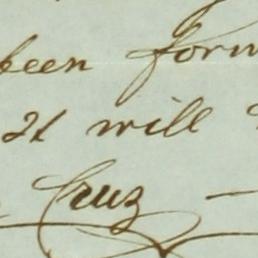 been form
It will
Cruz